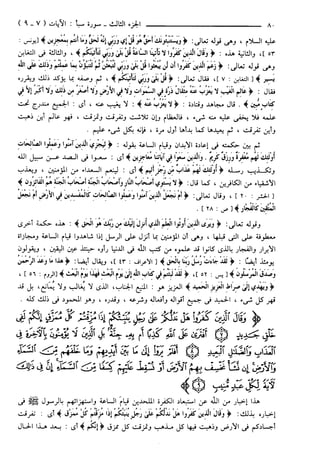 ٨٠ الجزء الثالث - سورة سبأ : الآيات ( ٧ - ٩ )
عليه السلام ، وهى قوله تعالى : ﴿ ويستنبئونك أحق هو قل إي وربي إنه لحق وما أنتم بمعجزين ﴾ [ يونس :
٥٣ ] ، والثانية هذه : ﴿ وقال الذين كفروا لا تأتينا الساعة قل بلى وربي لتأتينكم ﴾ ، والثالثة فى التغابن
وهى قوله تعالى : ﴿ زعم الذين كفروا أن لن يبعثوا قل بلى وربي لتبعثن ثم لتنبؤن بما عملتم وذلك على الله
يسير ﴾ [ التغابن : ٧ ] ، فقال تعالى : ﴿ قل بلى وربي لتأتينكم ﴾ ، ثم وصفه بما يؤكد ذلك ويقرره
فقال : ﴿ عالم الغيب لا يعزب عنه مثقال ذرة في السموات ولا في الأرض ولا أصغر من ذلك ولا أكبر إلا في
كتاب مبين ﴾ . قال مجاهد وقتادة : ﴿ لا يعزب عنه ﴾ : لا يغيب عنه ، أى : الجميع مندرج تحت
علمه فلا يخفى عليه منه شىء ، فالعظام وإن تلاشت وتفرقت وتمزقت ، فهو عالم أين ذهبت
وأين تفرقت ، ثم يعيدها كما بدأها أول مرة ، فإنه بكل شىء عليم .
ثم بين حكمته فى إعادة الأبدان وقيام الساعة بقوله : ﴿ ليجزي الذين آمنوا وعملوا الصالحات
أولئك لهم مغفرة ورزق كريم . والذين سعوا في آياتنا معاجزين ﴾ أى : سعوا فى الصد عن سبيل الله
وتكذيب رسله ﴿ أولئك لهم عذاب من رجز أليم ﴾ أى : لينعم السعداء من المؤمنين ، ويعذب
الأشقياء من الكافرين ، كما قال : ﴿ لا يستوي أصحاب النار وأصحاب الجنة أصحاب الجنة هم الفائزون ﴾
[ الحشر : ٢٠ ] ، وقال تعالى : ﴿ أم نجعل الذين آمنوا وعملوا الصالحات كالمفسدين في الأرض أم نجعل
المتقين كالفجار ﴾ [ ص : ٢٨ ] .
وقوله تعالى : ﴿ ويرى الذين أوتوا العلم الذي أنزل إليك من ربك هو الحق ﴾ : هذه حكمة أخرى
معطوفة على التى قبلها ، وهى أن المؤمنين بما أنزل على الرسل إذا شاهدوا قيام الساعة ومجازاة
الأبرار والفجار بالذى كانوا قد علموه من كتب الله فى الدنيا رأوه حينئذ عين اليقين ، ويقولون
يومئذ أيضا : ﴿ لقد جاءت رسل ربنا بالحق ﴾ [ الأعراف : ٤٣ ] ، ويقال أيضا : ﴿ هذا ما وعد الرحمن
وصدق المرسلون ﴾ [ يس : ٥٢ ] ، ﴿ لقد لبثتم في كتاب الله إلى يوم البعث فهذا يوم البعث ﴾ [ الروم : ٥٦ ] ،
﴿ ويهدي إلى صراط العزيز الحميد ﴾ العزيز هو : المنيع الجناب ، الذى لا يغالب ولا يمانع ، بل قد
قهر كل شىء ، الحميد فى جميع أقواله وأفعاله وشرعه ، وقدره ، وهو المحمود فى ذلك كله .
﴿ وقال الذين كفروا هل ندلكم على رجل ينبئكم إذا مزقتم كل ممزق إنكم لفي
خلق جديد ٧ أفترى على الله كذبا أم به جنة بل الذين لا يؤمنون بالآخرة في
العذاب والضلال البعيد ٨ أفلم يروا إلى ما بين أيديهم وما خلفهم من السماء
والأرض إن نشأ نخسف بهم الأرض أو نسقط عليهم كسفا من السماء إن في ذلك
لآية لكل عبد منيب ٩ ﴾
هذا إخبار من الله عن استبعاد الكفرة الملحدين قيام الساعة واستهزائهم بالرسول ﷺ فى
إخباره بذلك : ﴿ وقال الذين كفروا هل ندلكم على رجل ينبئكم إذا مزقتم كل ممزق ﴾ أى : تفرقت
أجسادكم فى الأرض وذهبت فيها كل مذهب وتمزقت كل ممزق ﴿ إنكم ﴾ أى : بعد هذا الحال